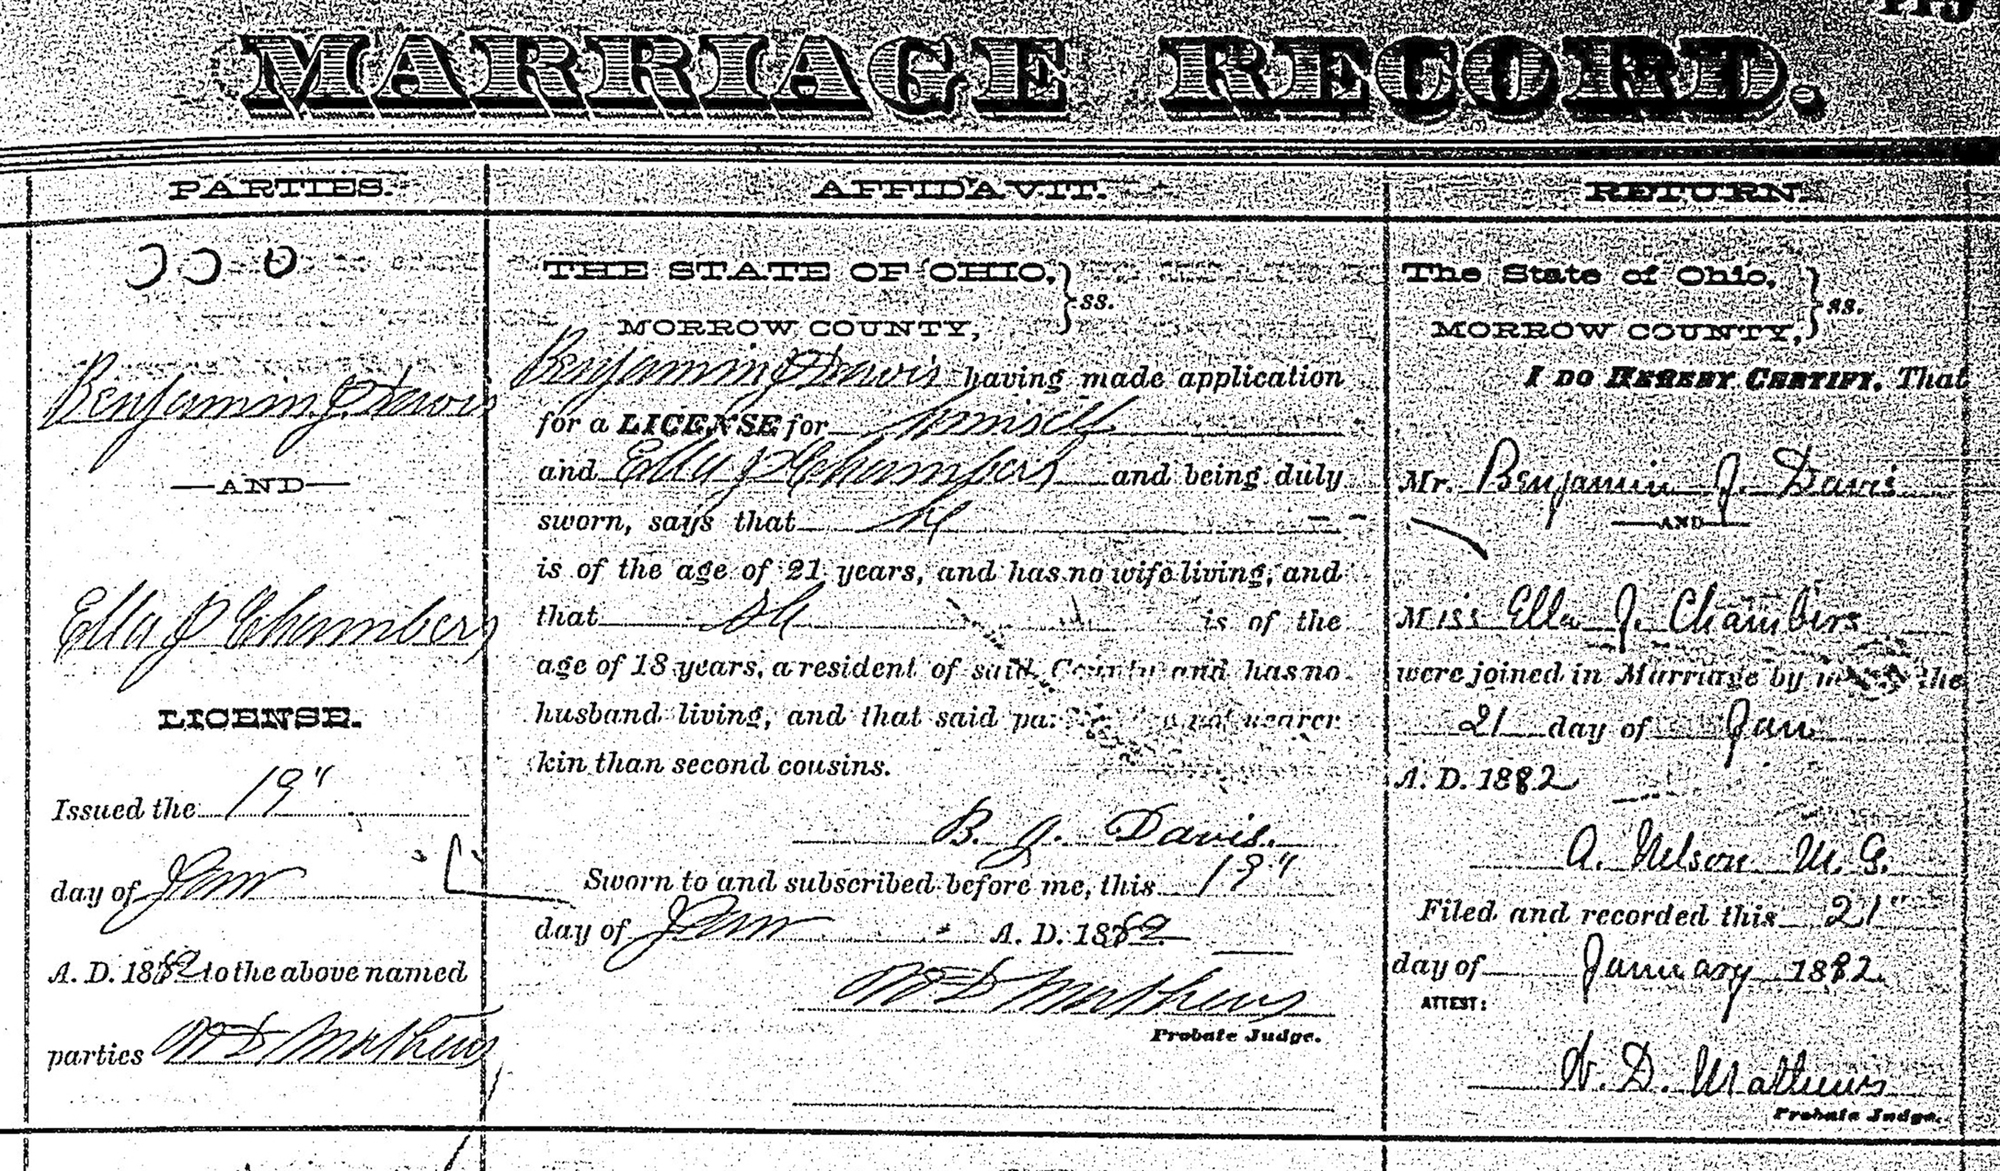 MARRIAGE RECORD.
PARTIES.
Benjamin J Davis
AND
Ella J Chambers
LICENSE.
Issued the 19"
day of Jan
A. D. 1882 to the above named
parties W D Mathews
AFFIDAVIT.
THE STATE OF OHIO,
MORROW COUNTY, } ss.
Benjamin J Davis having made application
for a LICENSE for himself
and Ella J Chambers and being duly
sworn, says that he
is of the age of 21 years, and has no wife living, and
that she is of the
age of 18 years, a resident of said County and has no
husband living, and that said not nearer
kin than second cousins.
B. J. Davis.
Sworn to and subscribed before me, this 19"
day of Jan A. D. 1882
W D Mathews
Probate Judge.
RETURN.
The State of Ohio,
MORROW COUNTY, } ss.
I DO HEREBY CERTIFY, That
Mr. Benjamin J. Davis
AND
Miss Ella J. Chambers
were joined in Marriage by the
21 day of Jan
A. D. 1882
A. Nelson M. G.
Filed and recorded this 21"
day of January 1882
ATTEST:
W. D. Mathews
Probate Judge.